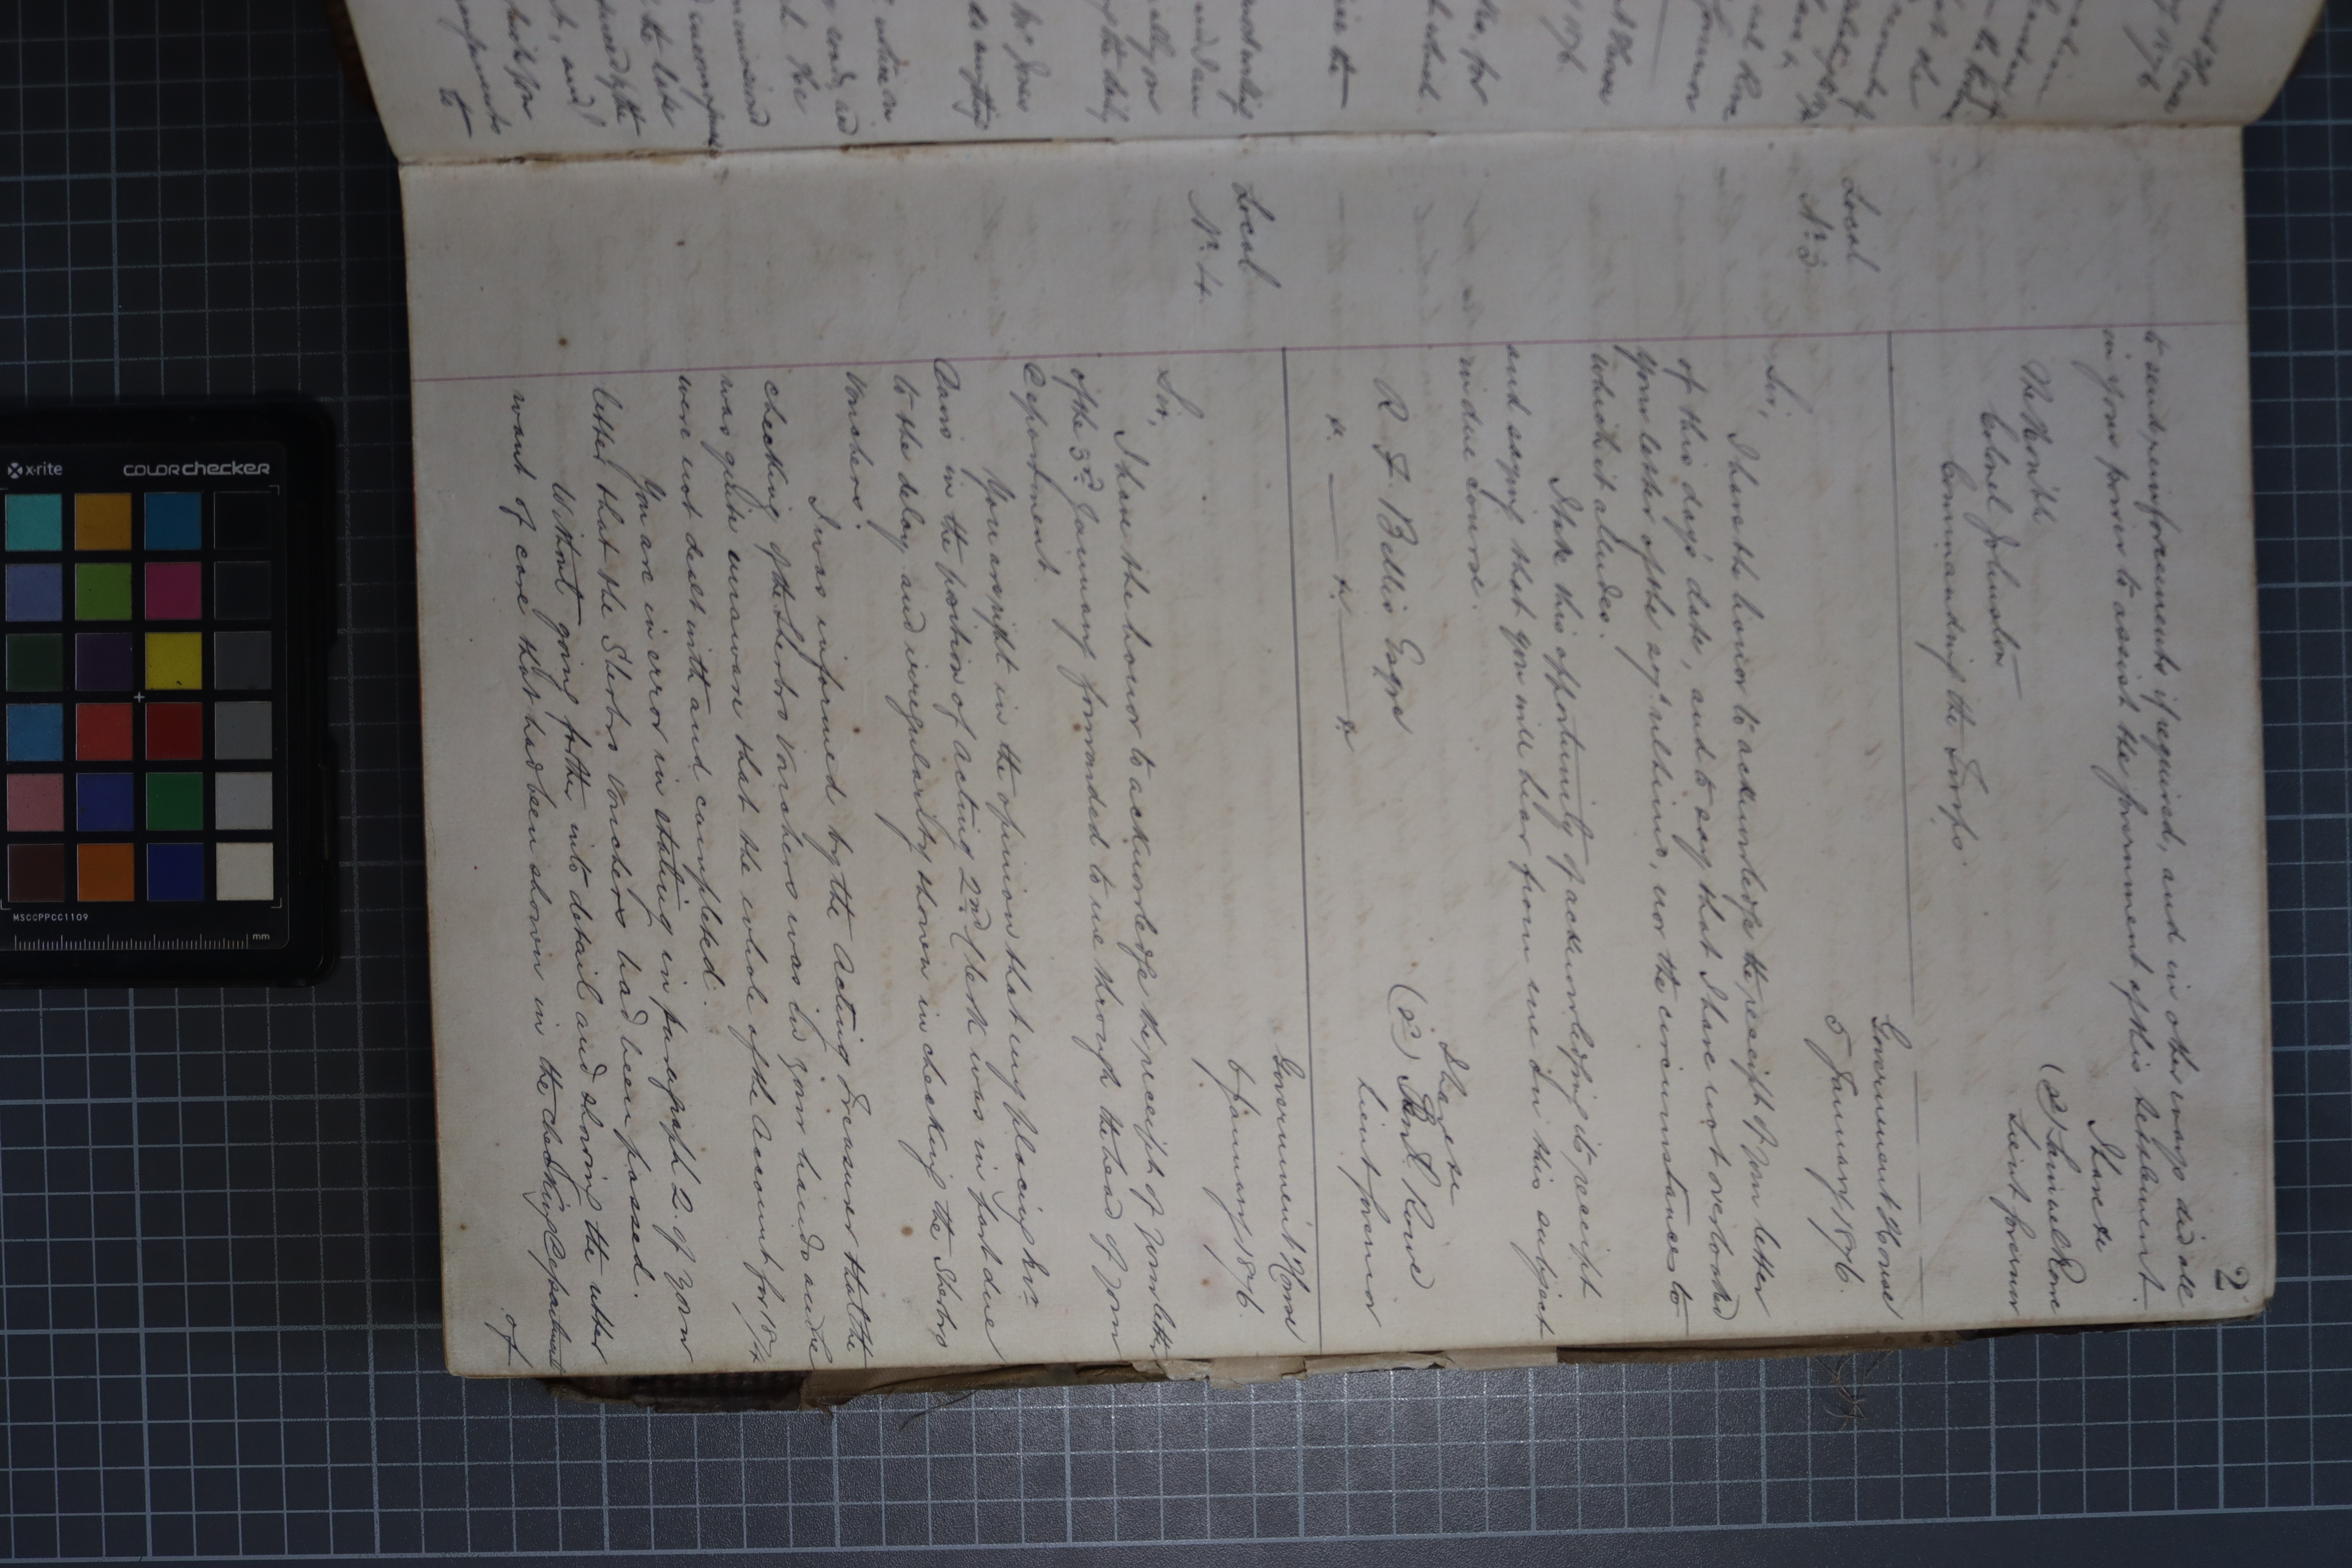 2
to send reinforcements if required, and in other ways aid all
in your power to assist the government of this settlement.
I have &c
(s) Samuel Rowe
Lieut Governor
Colonel Johnston
Commanding the Troops.
Government House
5 January 1876.
Local
No. 3
Sir,
I have the honor to acknowledge the receipt of your letter
of this day's date, and to say that I have not overlooked
your letter of the ulto, nor the circumstances to
which it alludes.
I take this opportunity of acknowledging its receipt
and saying that you will hear from me on this subject
in due course.
I have &c
(s) Rowe
Lieut Governor
R. F. Bellis Esqre
" ——— " ——— "
Government House
6 January 1876.
Local
No. 4.
Sir,
I have the honor to acknowledge the receipt of your letter
of the 3rd January forwarded to me through the head of your
Department.
You are right in the opinion that my placing Mr.
in the position of Acting 2nd Clerk was in part due
to the delay and irregularity shown in checking the Sherbro
Vouchers.
I was informed by the Acting Treasurer that the
checking of the Sherbro Vouchers was in your hands and
was quite unaware that the whole of the Account for 1874
were not dealt with and completed.
You are in error in stating in paragraph 2. of your
letter that the Sherbro Vouchers had been passed.
Without going further into detail and showing the utter
want of care that had been shown in the checking Department
of
MSCCPPCC1109
x-rite
colorchecker
mm